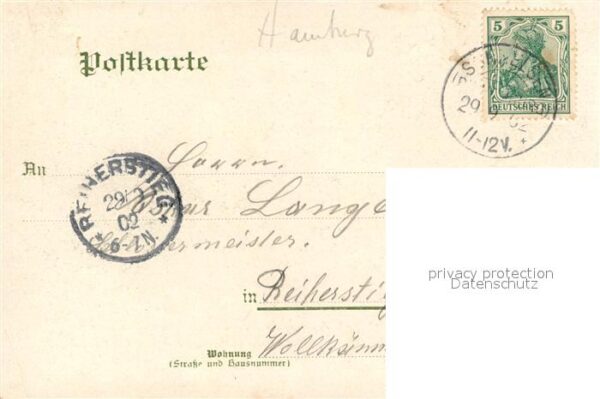 Hamburg
Postkarte
5
DEUTSCHES REICH
29 9 02
11-12V.
An
Herrn
Oskar Lange
REIHERSTIEG
29/9
02
6-7N.
meister.
in Reiherstieg
privacy protection
Datenschutz
Wohnung
(Straße und Hausnummer)